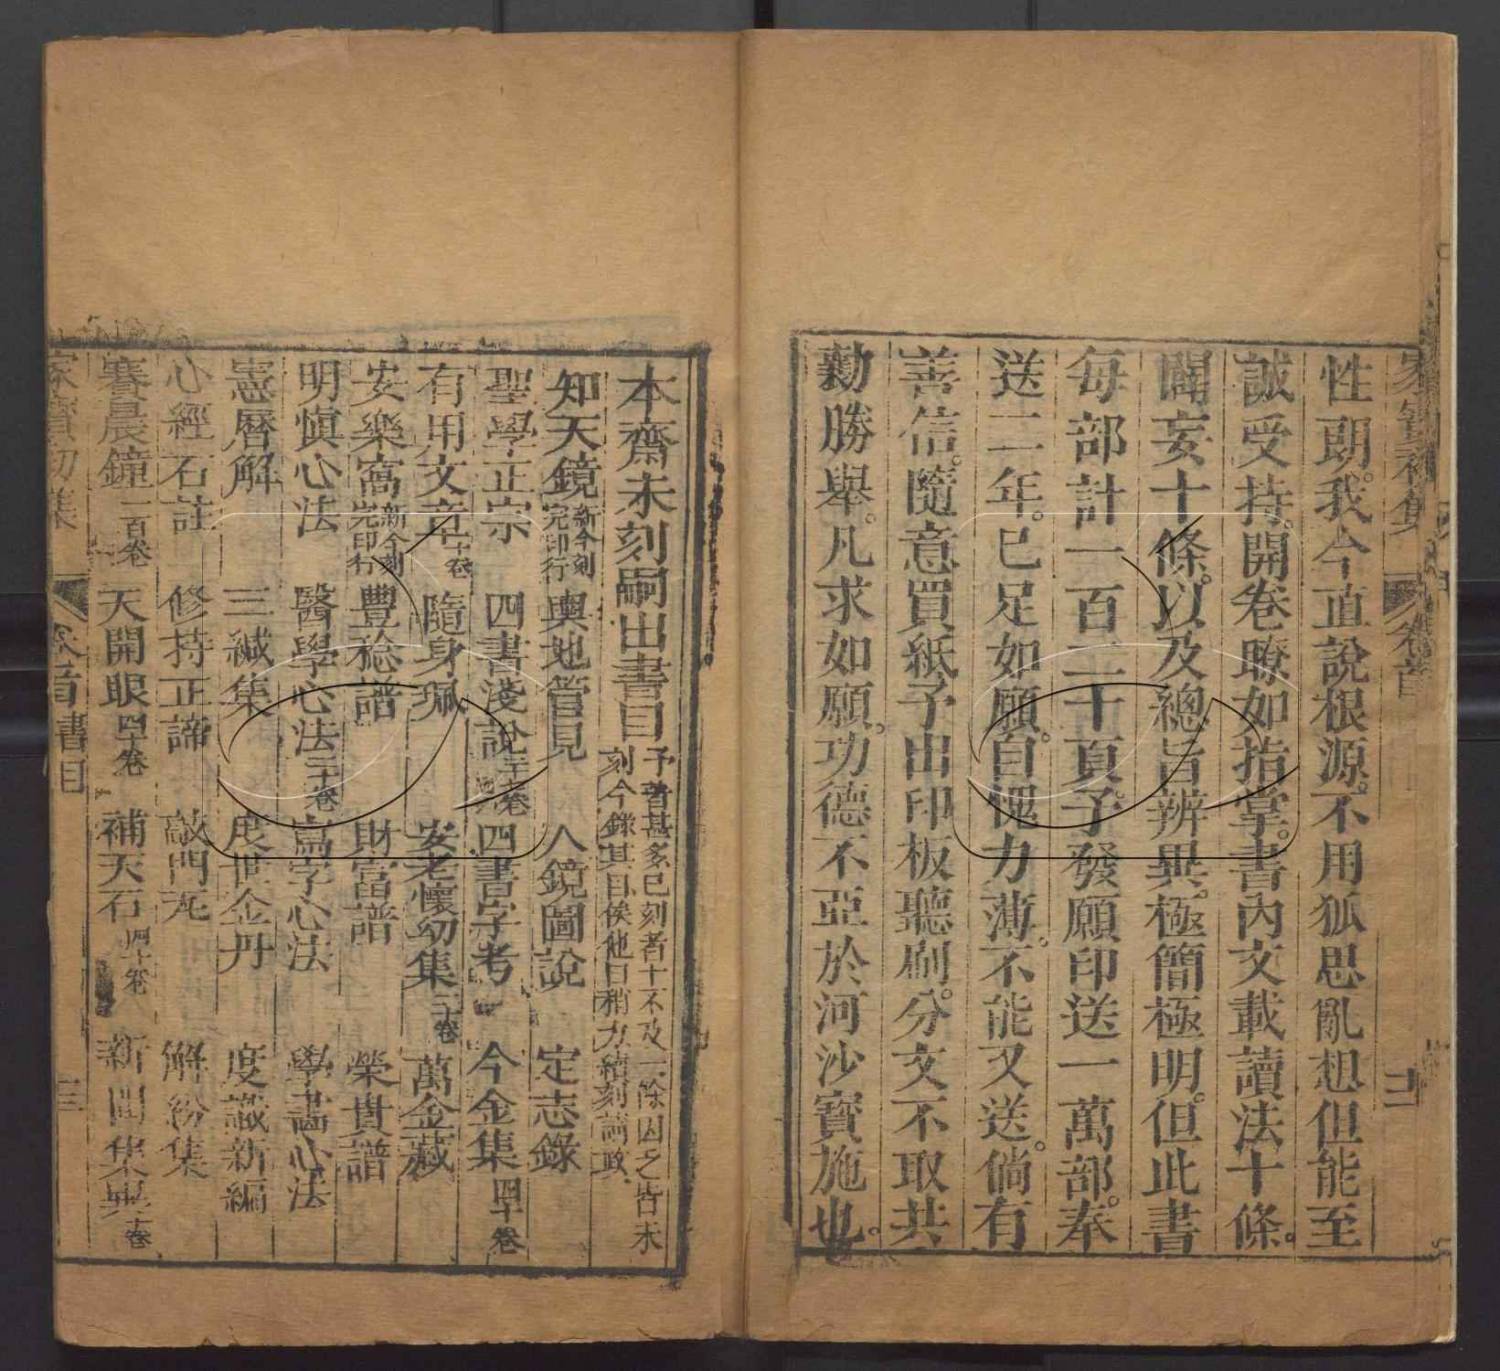 家寶初集 卷首
性朗。我今直說根源。不用狐思亂想但能至
誠受持。開卷瞭如指掌。書內文載讀法十條。
闢妄十條。以及總旨辨異。極簡極明。但此書
每部計一百二十頁。予發願印送一萬部。奉
送二年。已足如願。自愧力薄。不能又送。倘有
善信。隨意買紙。予出印板聽刷。分文不取。共
勷勝舉。凡求如願。功德不亞於河沙寶施也。
本齋未刻嗣出書目 予著甚多已刻者十不及一除因之皆未
刻今錄其目俟他日稍力續刻請政
知天鏡 新今刻完印行 輿地管見 人鏡圖說 定志錄
聖學正宗 四書淺說 二十卷 四書字考 今金集 四十卷
有用文章 二十卷 隨身珮 安老懷幼集 二十卷 萬金藏
安樂窩 新今刻完印行 豐稔譜 財富譜 榮貴譜
明愼心法 醫學心法 二十卷 寫字心法 學畵心法
憲曆解 三緘集 度世金丹 度識新編
心經石註 修持正諦 敲門瓦 解紛集
賽晨鐘 一百卷 天開眼 四十卷 補天石 四十卷 新聞集異 十卷
家寶初集 卷首書目 三